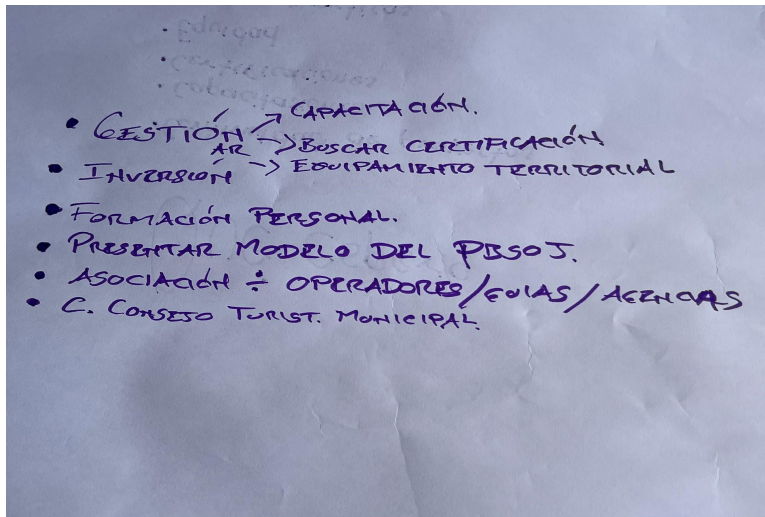 • GESTIÓN ↗ CAPACITACIÓN.
AR -> BUSCAR CERTIFICACIÓN
• INVERSIÓN -> EQUIPAMIENTO TERRITORIAL
• FORMACIÓN PERSONAL.
• PRESENTAR MODELO DEL PBSOJ.
• ASOCIACIÓN ÷ OPERADORES/GUIAS/AGENCIAS
• C. CONSEJO TURIST. MUNICIPAL.